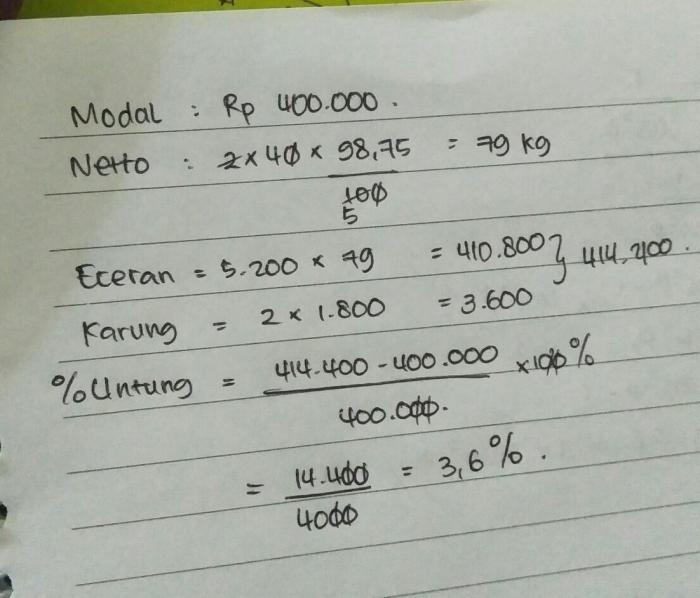 Modal : Rp 400.000.
Netto : 2 x 40 x 98,75 = 79 kg
100
5
Eceran = 5.200 x 79 = 410.800 } 414.400.
Karung = 2 x 1.800 = 3.600
% Untung = 414.400 - 400.000 x 100%
400.000.
= 14.400 = 3,6%.
4000